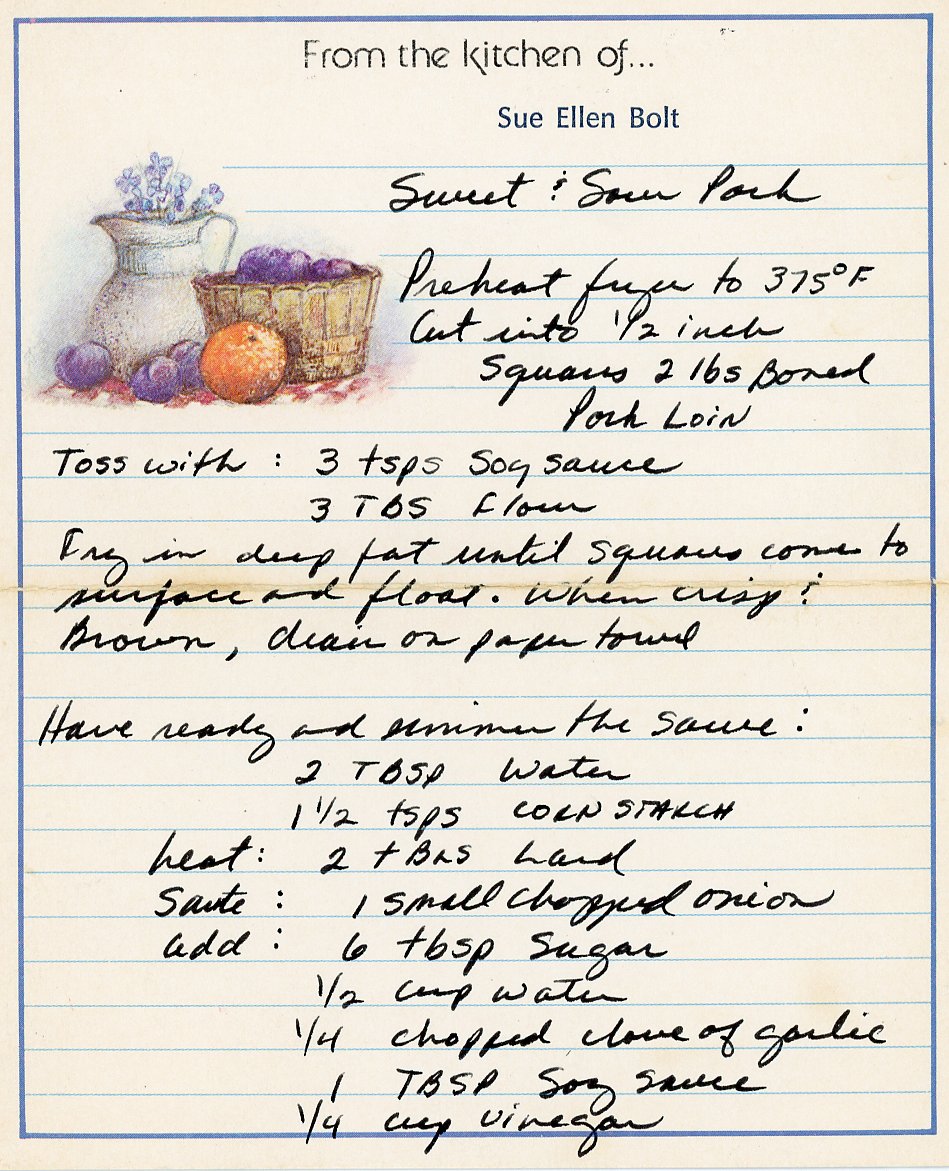 From the kitchen of...
Sue Ellen Bolt
Sweet & Sour Pork
Preheat fryer to 375°F
Cut into 1/2 inch
Squares 2 lbs Boned
Pork Loin
Toss with : 3 tsps Soy sauce
3 TBS Flour
Fry in deep fat until squares come to
surface and float. When crisp &
Brown, drain on paper towel
Have ready and simmer the sauce :
2 TBSP Water
1 1/2 tsps CORN STARCH
heat : 2 tBLS Lard
Saute : 1 small chopped onion
add : 6 tbsp Sugar
1/2 cup water
1/4 chopped clove of garlic
1 TBSP Soy Sauce
1/4 cup Vinegar